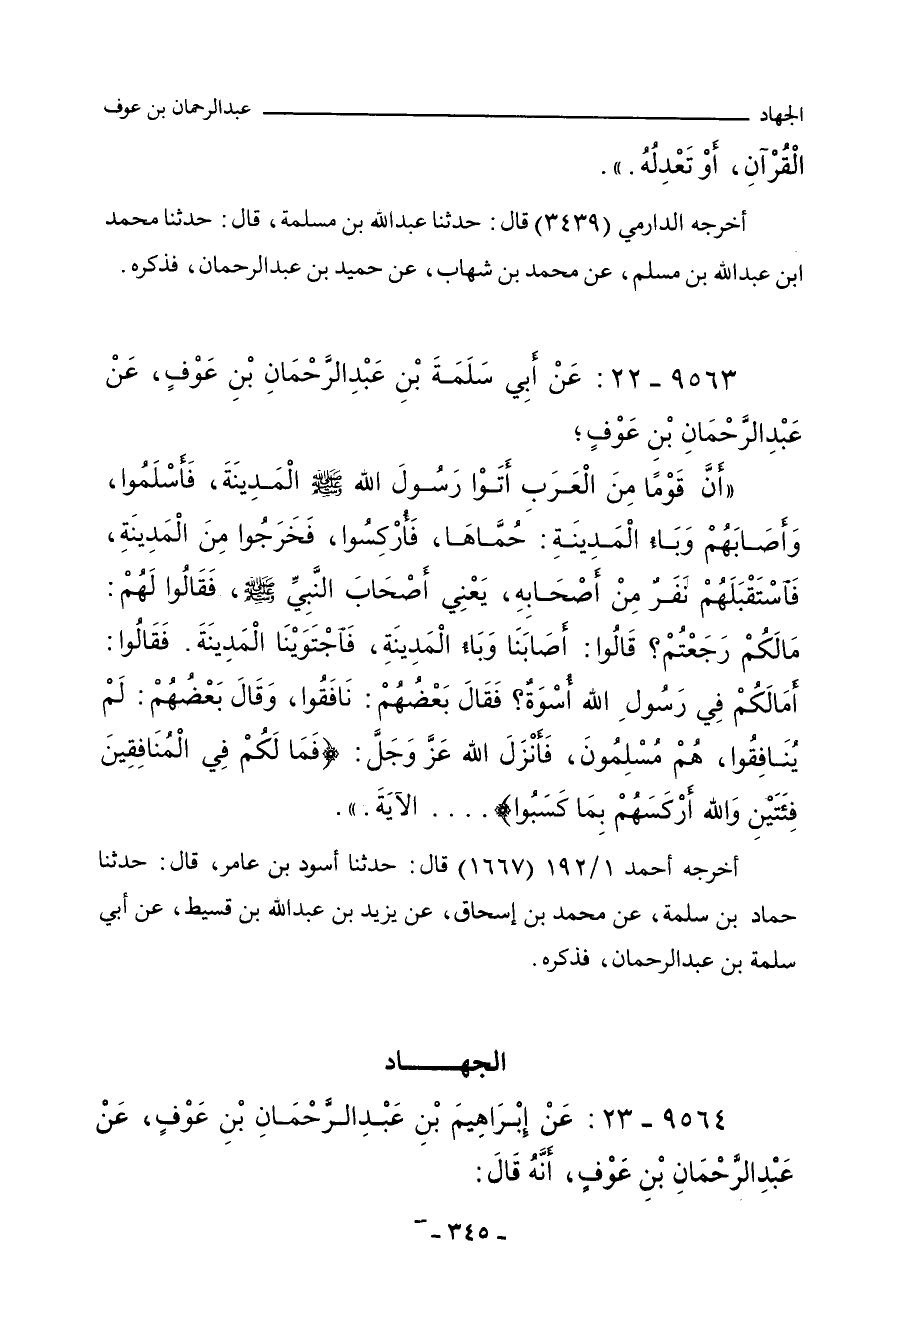 الجهاد ــــــــ عبدالرحمان بن عوف
الْقُرْآنِ، أَوْ تَعْدِلُهُ.».
أخرجه الدارمي (٣٤٣٩) قال: حدثنا عبدالله بن مسلمة، قال: حدثنا محمد
ابن عبدالله بن مسلم، عن محمد بن شهاب، عن حميد بن عبدالرحمان، فذكره.
٩٥٦٣ - ٢٢: عَنْ أَبِي سَلَمَةَ بْنِ عَبْدِالرَّحْمَانِ بْنِ عَوْفٍ، عَنْ
عَبْدِالرَّحْمَانِ بْنِ عَوْفٍ؛
«أَنَّ قَوْمًا مِنَ الْعَرَبِ أَتَوْا رَسُولَ الله ﷺ الْمَدِينَةَ، فَأَسْلَمُوا،
وَأَصَابَهُمْ وَبَاءُ الْمَدِينَةِ: حُمَّاهَا، فَأُرْكِسُوا، فَخَرَجُوا مِنَ الْمَدِينَةِ،
فَاسْتَقْبَلَهُمْ نَفَرٌ مِنْ أَصْحَابِهِ، يَعْنِي أَصْحَابَ النَّبِيِّ ﷺ، فَقَالُوا لَهُمْ:
مَالَكُمْ رَجَعْتُمْ؟ قَالُوا: أَصَابَنَا وَبَاءُ الْمَدِينَةِ، فَاجْتَوَيْنَا الْمَدِينَةَ. فَقَالُوا:
أَمَالَكُمْ فِي رَسُولِ الله أُسْوَةٌ؟ فَقَالَ بَعْضُهُمْ: نَافَقُوا، وَقَالَ بَعْضُهُمْ: لَمْ
يُنَافِقُوا، هُمْ مُسْلِمُونَ، فَأَنْزَلَ الله عَزَّ وَجَلَّ: ﴿فَمَا لَكُمْ فِي الْمُنَافِقِينَ
فِئَتَيْنِ وَالله أَرْكَسَهُمْ بِمَا كَسَبُوا﴾.... الآيَةَ.».
أخرجه أحمد ١٩٢/١ (١٦٦٧) قال: حدثنا أسود بن عامر، قال: حدثنا
حماد بن سلمة، عن محمد بن إسحاق، عن يزيد بن عبدالله بن قسيط، عن أبي
سلمة بن عبدالرحمان، فذكره.
الجهـــــاد
٩٥٦٤ - ٢٣: عَنْ إِبْرَاهِيمَ بْنِ عَبْدِالرَّحْمَانِ بْنِ عَوْفٍ، عَنْ
عَبْدِالرَّحْمَانِ بْنِ عَوْفٍ، أَنَّهُ قَالَ:
- ٣٤٥ -